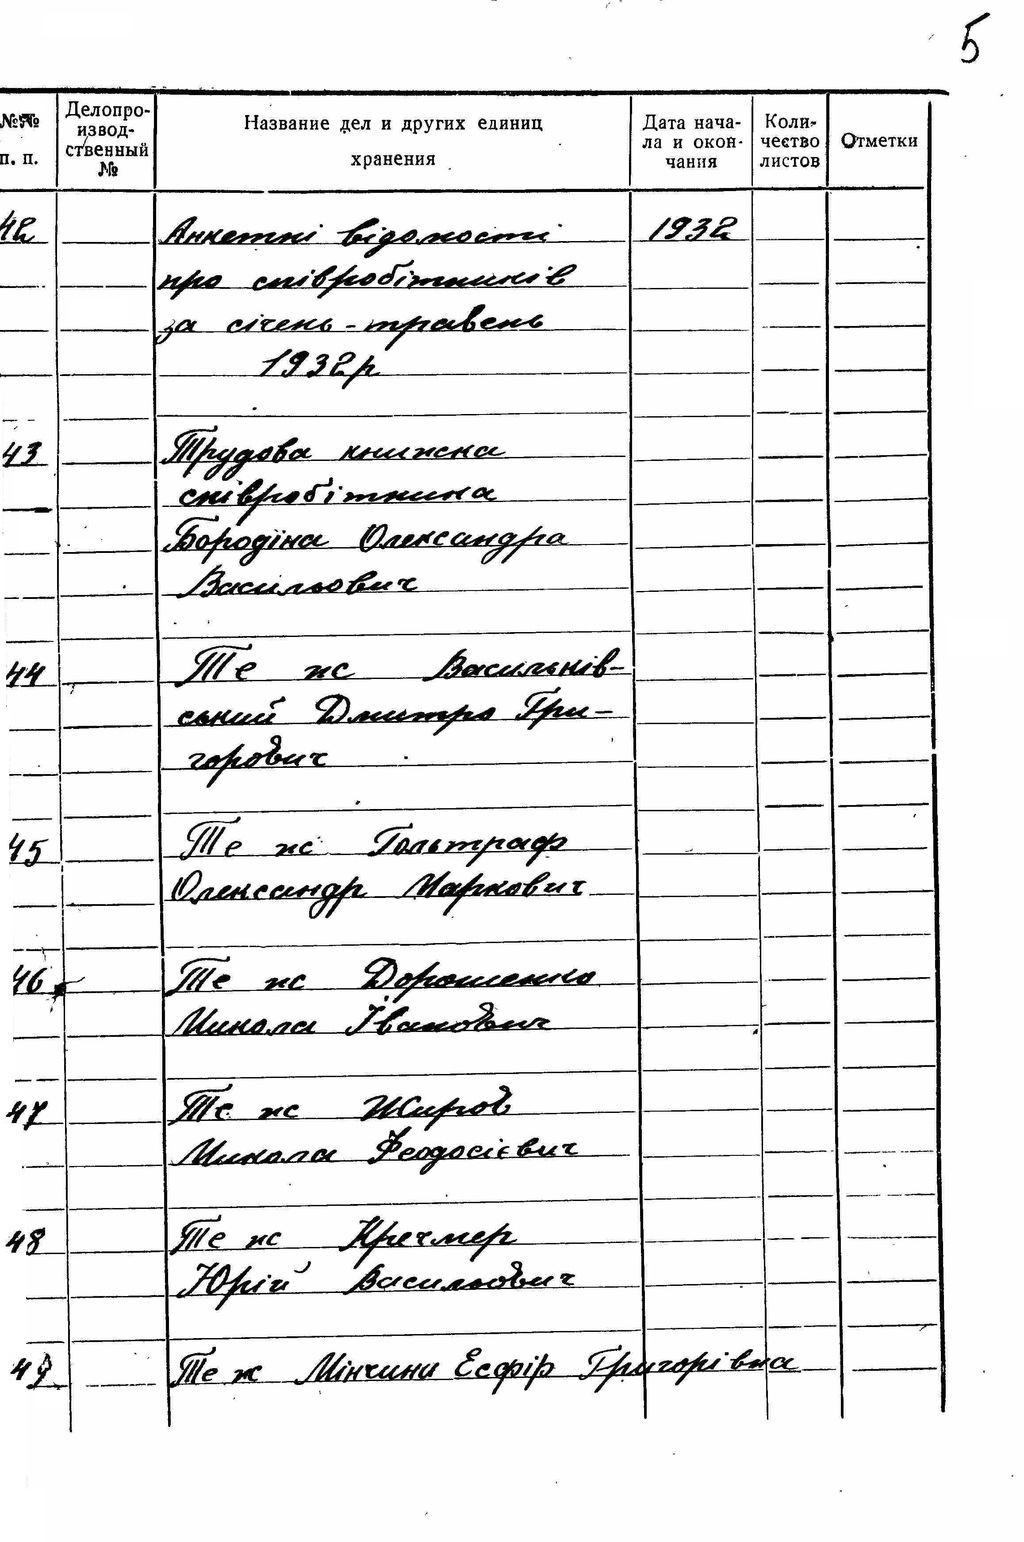 5
№№ п. п.
Делопроизвод-
ственный №
Название дел и других единиц хранения
Дата нача-
ла и окон-
чания
Коли-
чество
листов
Отметки
42 Анкетні відомості 1932
про співробітників
за січень - травень
1932 р
43 Трудова книжка
співробітника
Бородіна Олександра
Васильович
44 Те ж Васильків-
ський Дмитро Гри-
горович
45 Те ж Гольтраф
Олександр Маркович
46 Те ж Дорошенко
Микола Іванович
47 Те ж Жиров
Микола Феодосієвич
48 Те ж Кречмер
Юрій Васильович
49 Те ж Мінчини Есфір Григорівна